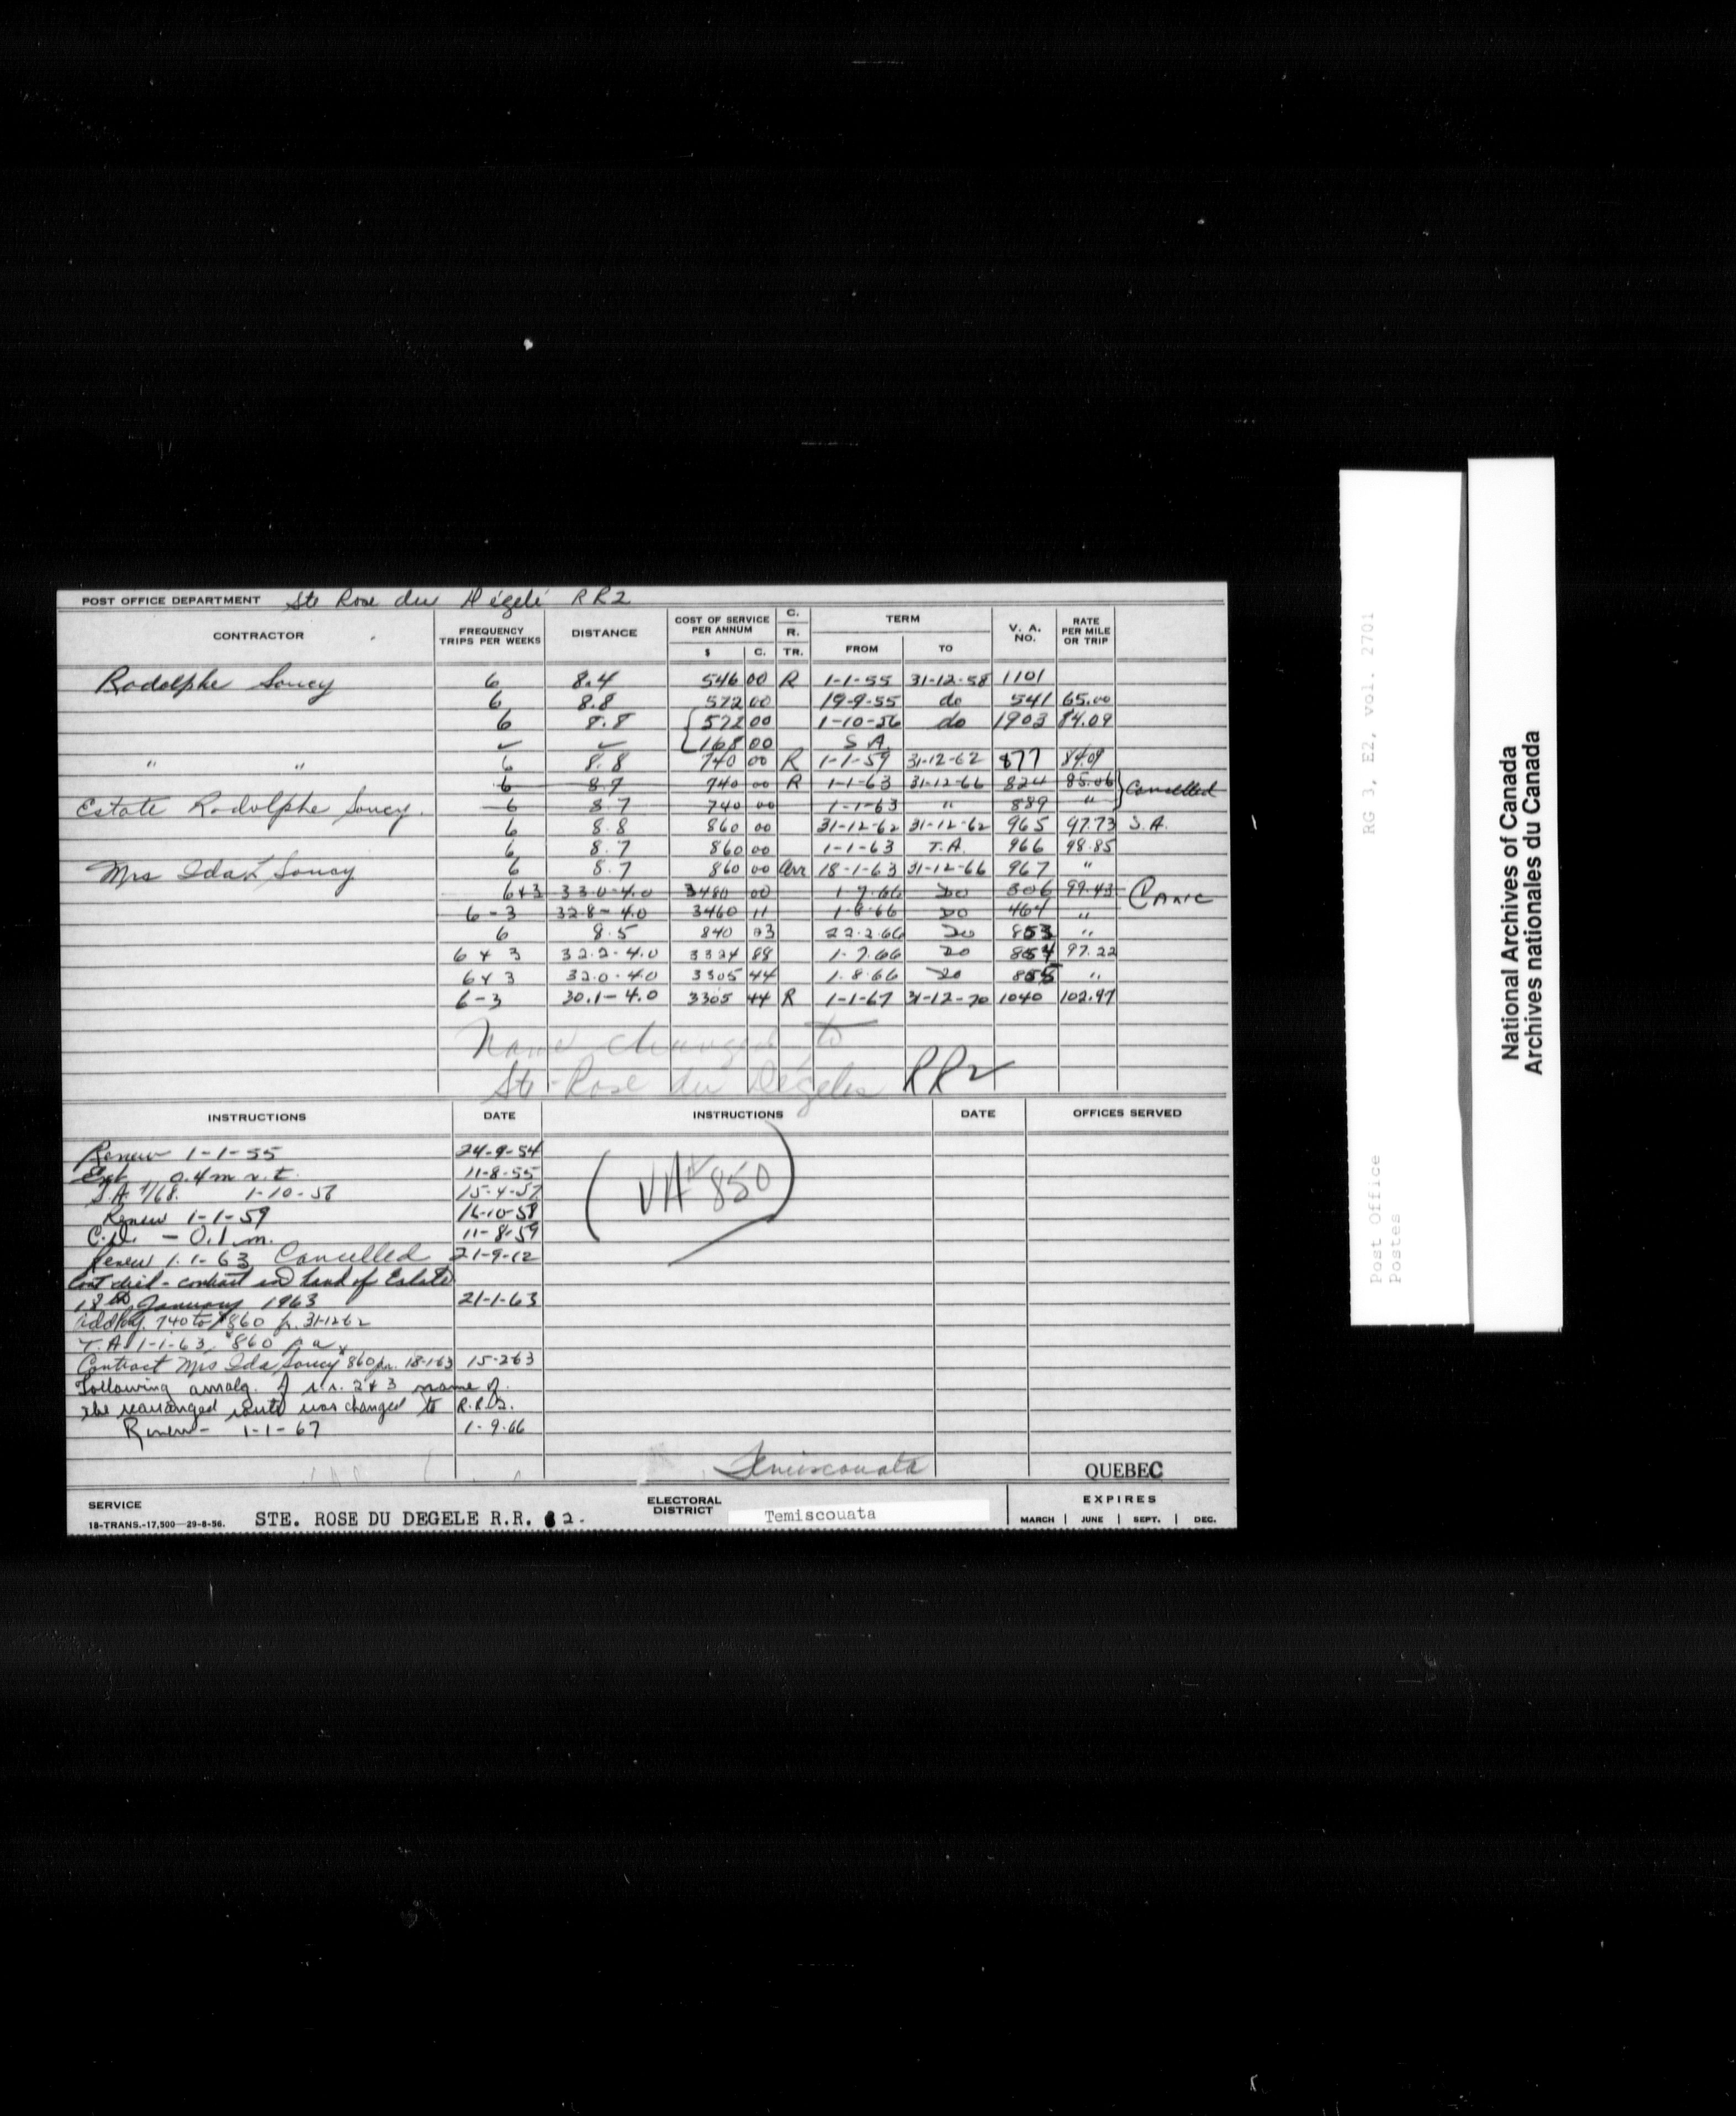 POST OFFICE DEPARTMENT Ste Rose du Dégelé RR2
CONTRACTOR FREQUENCY TRIPS PER WEEKS DISTANCE COST OF SERVICE PER ANNUM $ C. C. R. TR. TERM FROM TO V. A. NO. RATE PER MILE OR TRIP
Rodolphe Soucy 6 8.4 546 00 R 1-1-55 31-12-58 1101
6 8.8 572 00 19-9-55 do 541 65.00
6 8.8 572 00 1-10-56 do 1903 84.09
✓ ✓ 168 00 S A.
" " 6 8.8 740 00 R 1-1-59 31-12-62 877 84.09
6 8.7 740 00 R 1-1-63 31-12-66 824 85.06 Cancelled
Estate Rodolphe Soucy. 6 8.7 740 00 1-1-63 " 889 "
6 8.8 860 00 31-12-62 31-12-62 965 97.73 S.A.
6 8.7 860 00 1-1-63 T.A. 966 98.85
Mrs Ida L Soucy 6 8.7 860 00 18-1-63 31-12-66 967 "
6+3 33.0-4.0 3480 00 1-7-66 Do 306 99.43 Canc
6-3 32.8-4.0 3460 11 1-8-66 Do 464 "
6 8.5 840 23 22.2.66 Do 853 "
6 & 3 32.2-4.0 3324 88 1-7.66 Do 854 97.22
6 & 3 32.0-4.0 3305 44 1.8.66 Do 855 "
6-3 30.1-4.0 3305 44 R 1-1-67 31-12-70 1040 102.97
Name changed to
Ste-Rose du Dégelis RR2
INSTRUCTIONS DATE INSTRUCTIONS DATE OFFICES SERVED
Renew 1-1-55 24-9-54
Ext 0.4 m r.t. 11-8-55
S.A. $168. 1-10-56 15-4-57
Renew 1-1-59 16-10-58
C.D. - 0.1 m. 11-8-59
Renew 1.1-63 Cancelled 21-9-62
Cont died - contract in hand of Estate
18th January 1963 21-1-63
740 to $860 fr. 31-12-62
T.A. 1-1-63, $860 p a
Contract Mrs Ida Soucy $860 fr. 18-1-63 15-2-63
Following amalg. of r.r. 2 & 3 name of
the rearranged route was changed to R.R.2.
Renew- 1-1-67 1-9-66
(VA 850)
Temiscouata
QUEBEC
SERVICE STE. ROSE DU DEGELE R.R. 2. ELECTORAL DISTRICT Temiscouata EXPIRES
18-TRANS.-17,500—29-8-56. MARCH | JUNE | SEPT. | DEC.
RG 3, E2, vol. 2701
Post Office
Postes
National Archives of Canada
Archives nationales du Canada